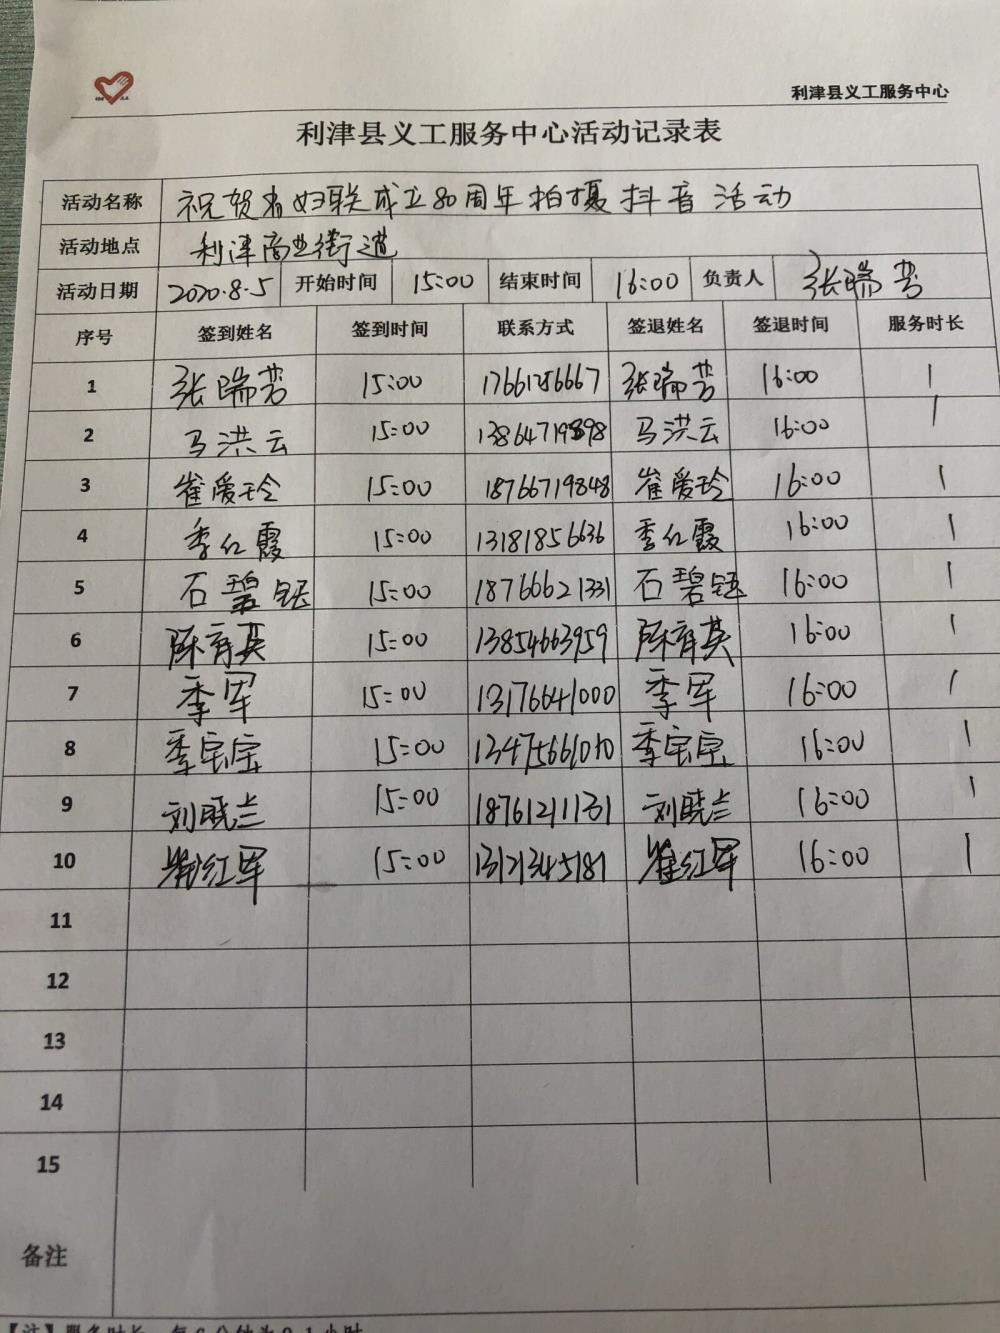 利津县义工服务中心
利津县义工服务中心活动记录表
活动名称 祝贺省妇联成立80周年拍摄抖音活动
活动地点 利津商业街道
活动日期 2020.8.5 开始时间 15:00 结束时间 16:00 负责人 张瑞芳
序号 签到姓名 签到时间 联系方式 签退姓名 签退时间 服务时长
1 张瑞芳 15:00 17661256667 张瑞芳 16:00 1
2 马洪云 15:00 13864719898 马洪云 16:00 1
3 崔爱玲 15:00 18766719848 崔爱玲 16:00 1
4 季红霞 15:00 13181856636 季红霞 16:00 1
5 石碧钰 15:00 18766621331 石碧钰 16:00 1
6 陈育英 15:00 13854663959 陈育英 16:00 1
7 季军 15:00 13176641000 季军 16:00 1
8 季宝宝 15:00 13475661010 季宝宝 16:00 1
9 刘晓兰 15:00 18761211131 刘晓兰 16:00 1
10 崔红军 15:00 13121345181 崔红军 16:00 1
11
12
13
14
15
备注
【注】服务时长，每6分钟为0.1小时